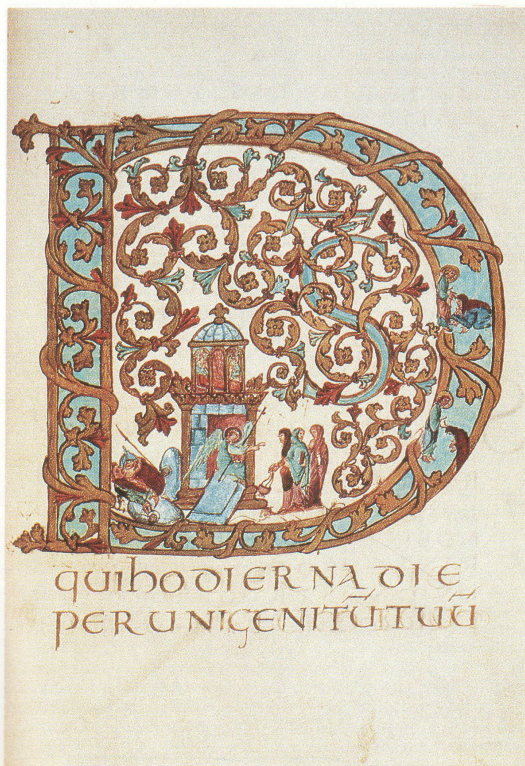 DS
quihoDIERNADIE
PERUNIGENITŪTUŪ